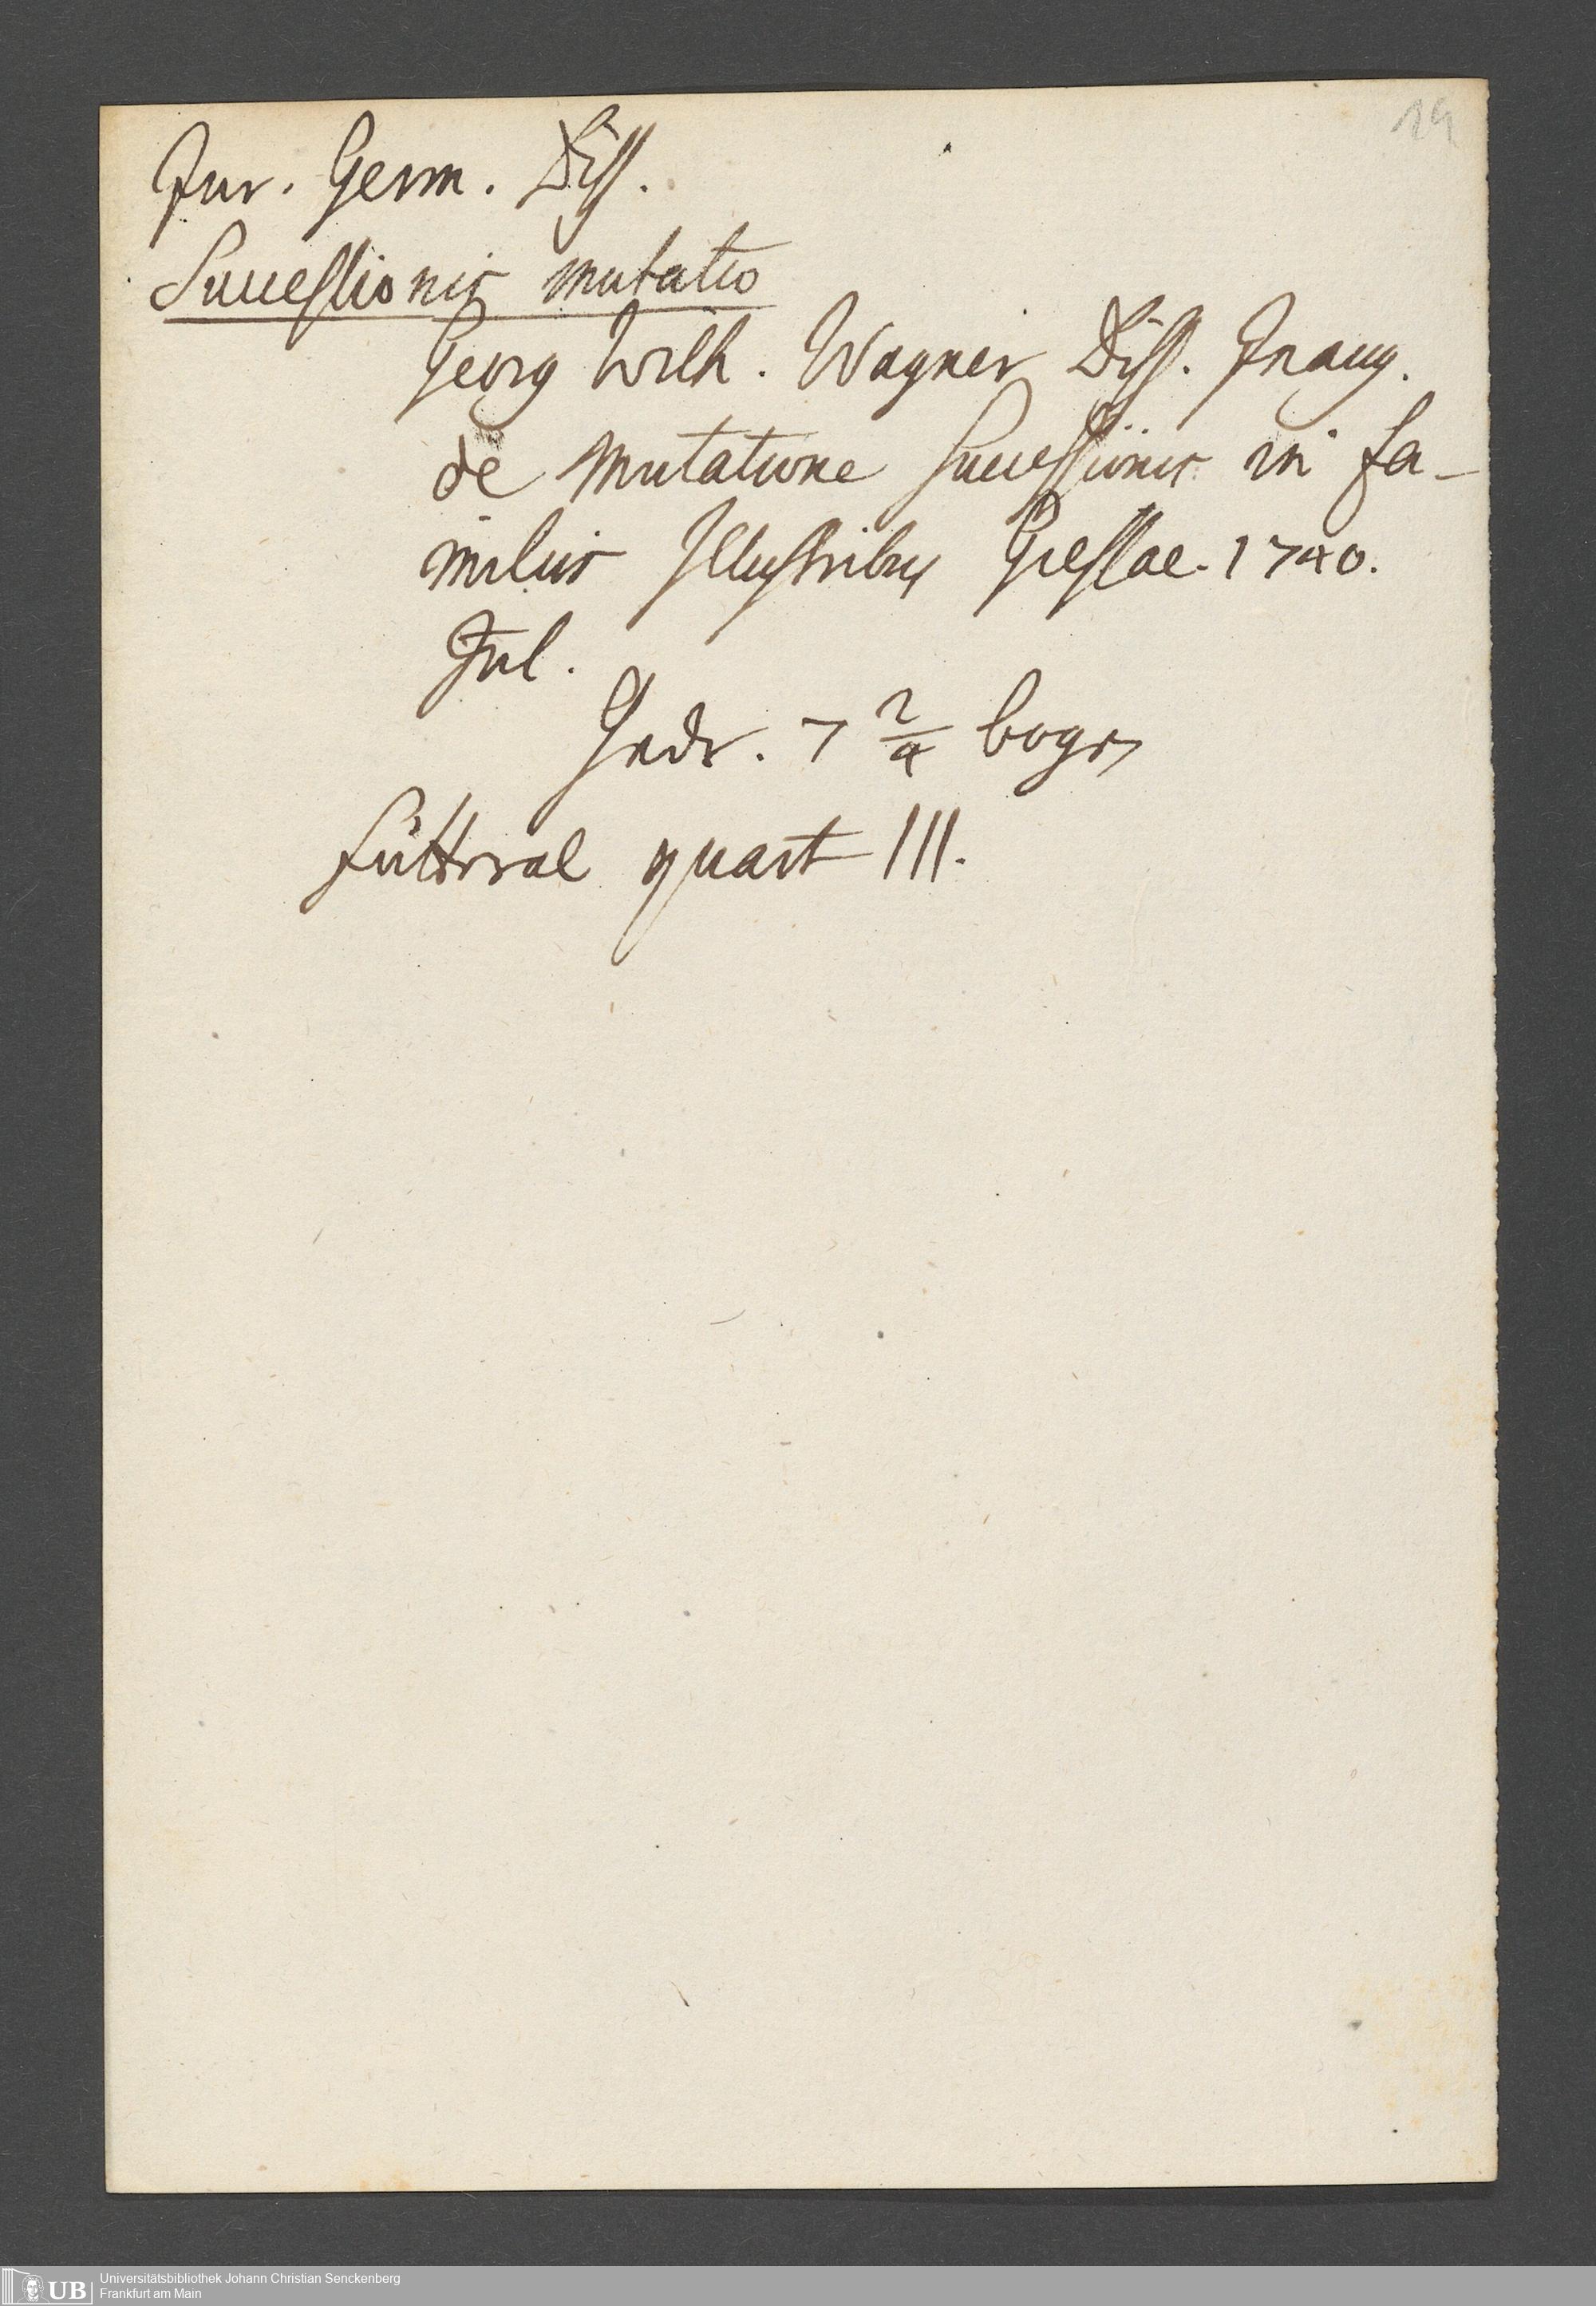 19
Jur. Germ. Diss.
Successionis mutatio
Georg Wilh. Wagner Diss. Inaug.
de mutatione successionis in fa-
miliis Illustribus Giessae. 1740.
Jul.
Gedr. 7 2/4 bogen
Futteral quart III.
UB
Universitätsbibliothek Johann Christian Senckenberg
Frankfurt am Main